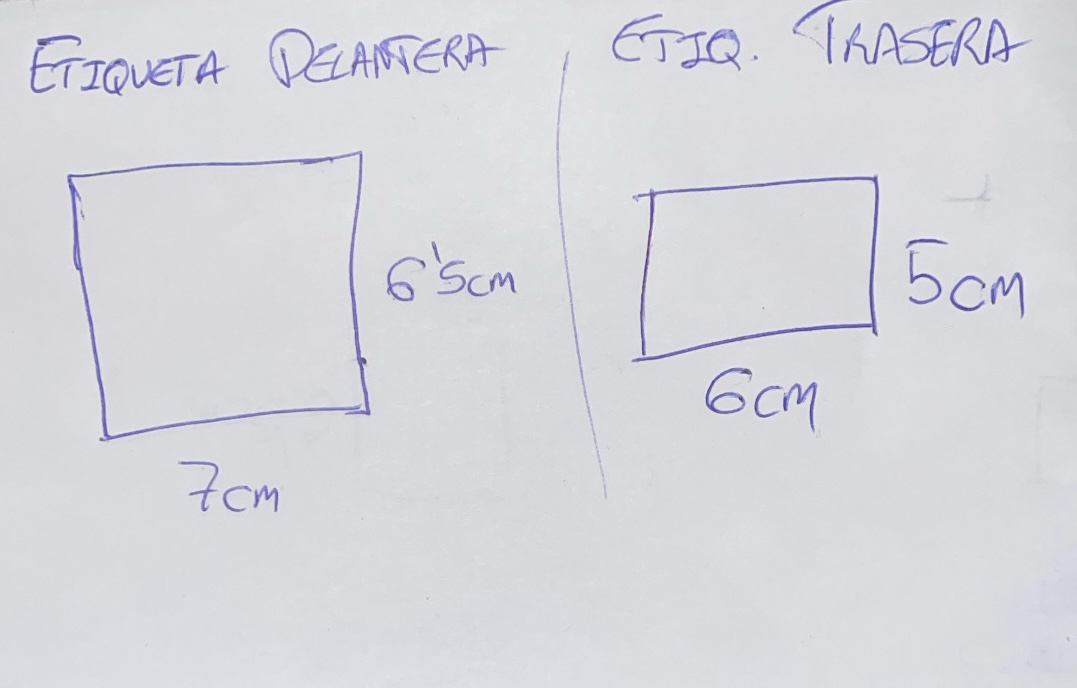 ETIQUETA DELANTERA
6'5cm
7cm
ETIQ. TRASERA
5cm
6cm